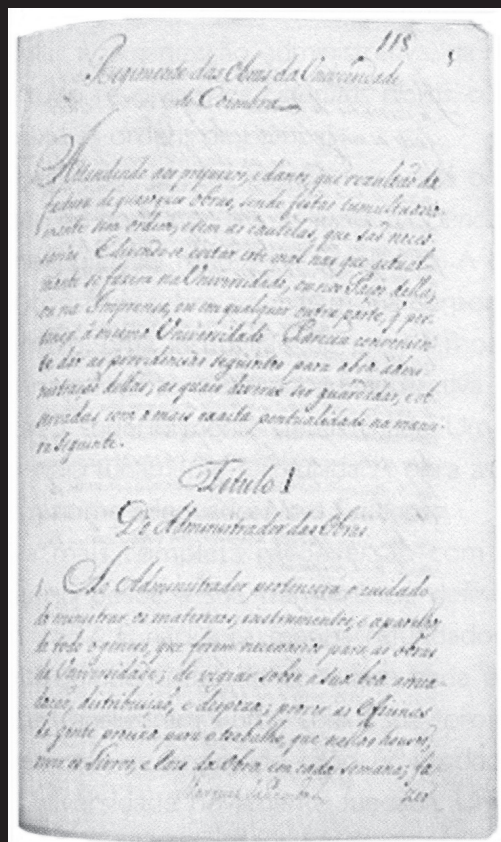 118
Regimento das Obras da Universidade
de Coimbra
Attendendo aos prejuizos, e danos, que rezultão da
factura de quaesquer obras, sendo feitas tumultuaria-
mente sem ordem, e sem as cautelas, que são neces-
sarias: E devendo-se evitar este mal nas que actual-
mente se fazem na Universidade, ou nos Paços della,
ou na Imprensa, ou em qualquer outra parte, q̃ per-
tença á mesma Universidade: Pareceu convenien-
te dar as providencias seguintes para a boa admi-
nistração dellas; as quais deverão ser guardadas, e ob-
servadas com a mais exacta pontualidade na manei-
ra seguinte.
Titulo 1
Do Administrador das Obras
1. Ao Administrador pertencerá o cuidado
de menistrar os materiaes, instrumentos, e aparelhos
de todo o genero, que forem necessarios para as obras
da Universidade; de vigiar sobre a sua boa arreca-
dação, distribuição, e despeza; prover as Officinas
de gente preciza para o trabalho, que nellas houver,
os Livros, e Obra em cada semana; fa-
Marquez de Pombal
zer